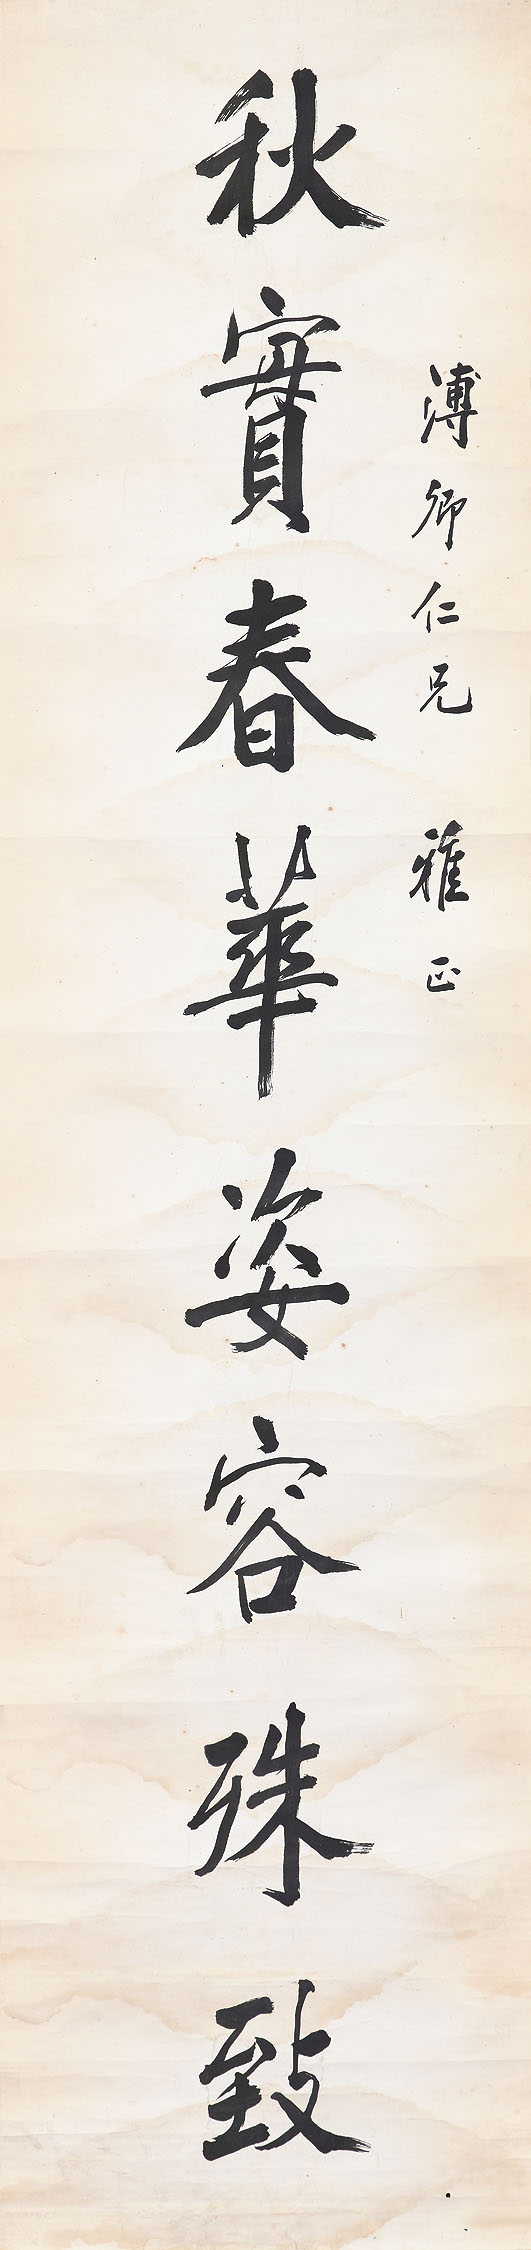 溥卿仁兄 雅正
秋實春華姿容殊致